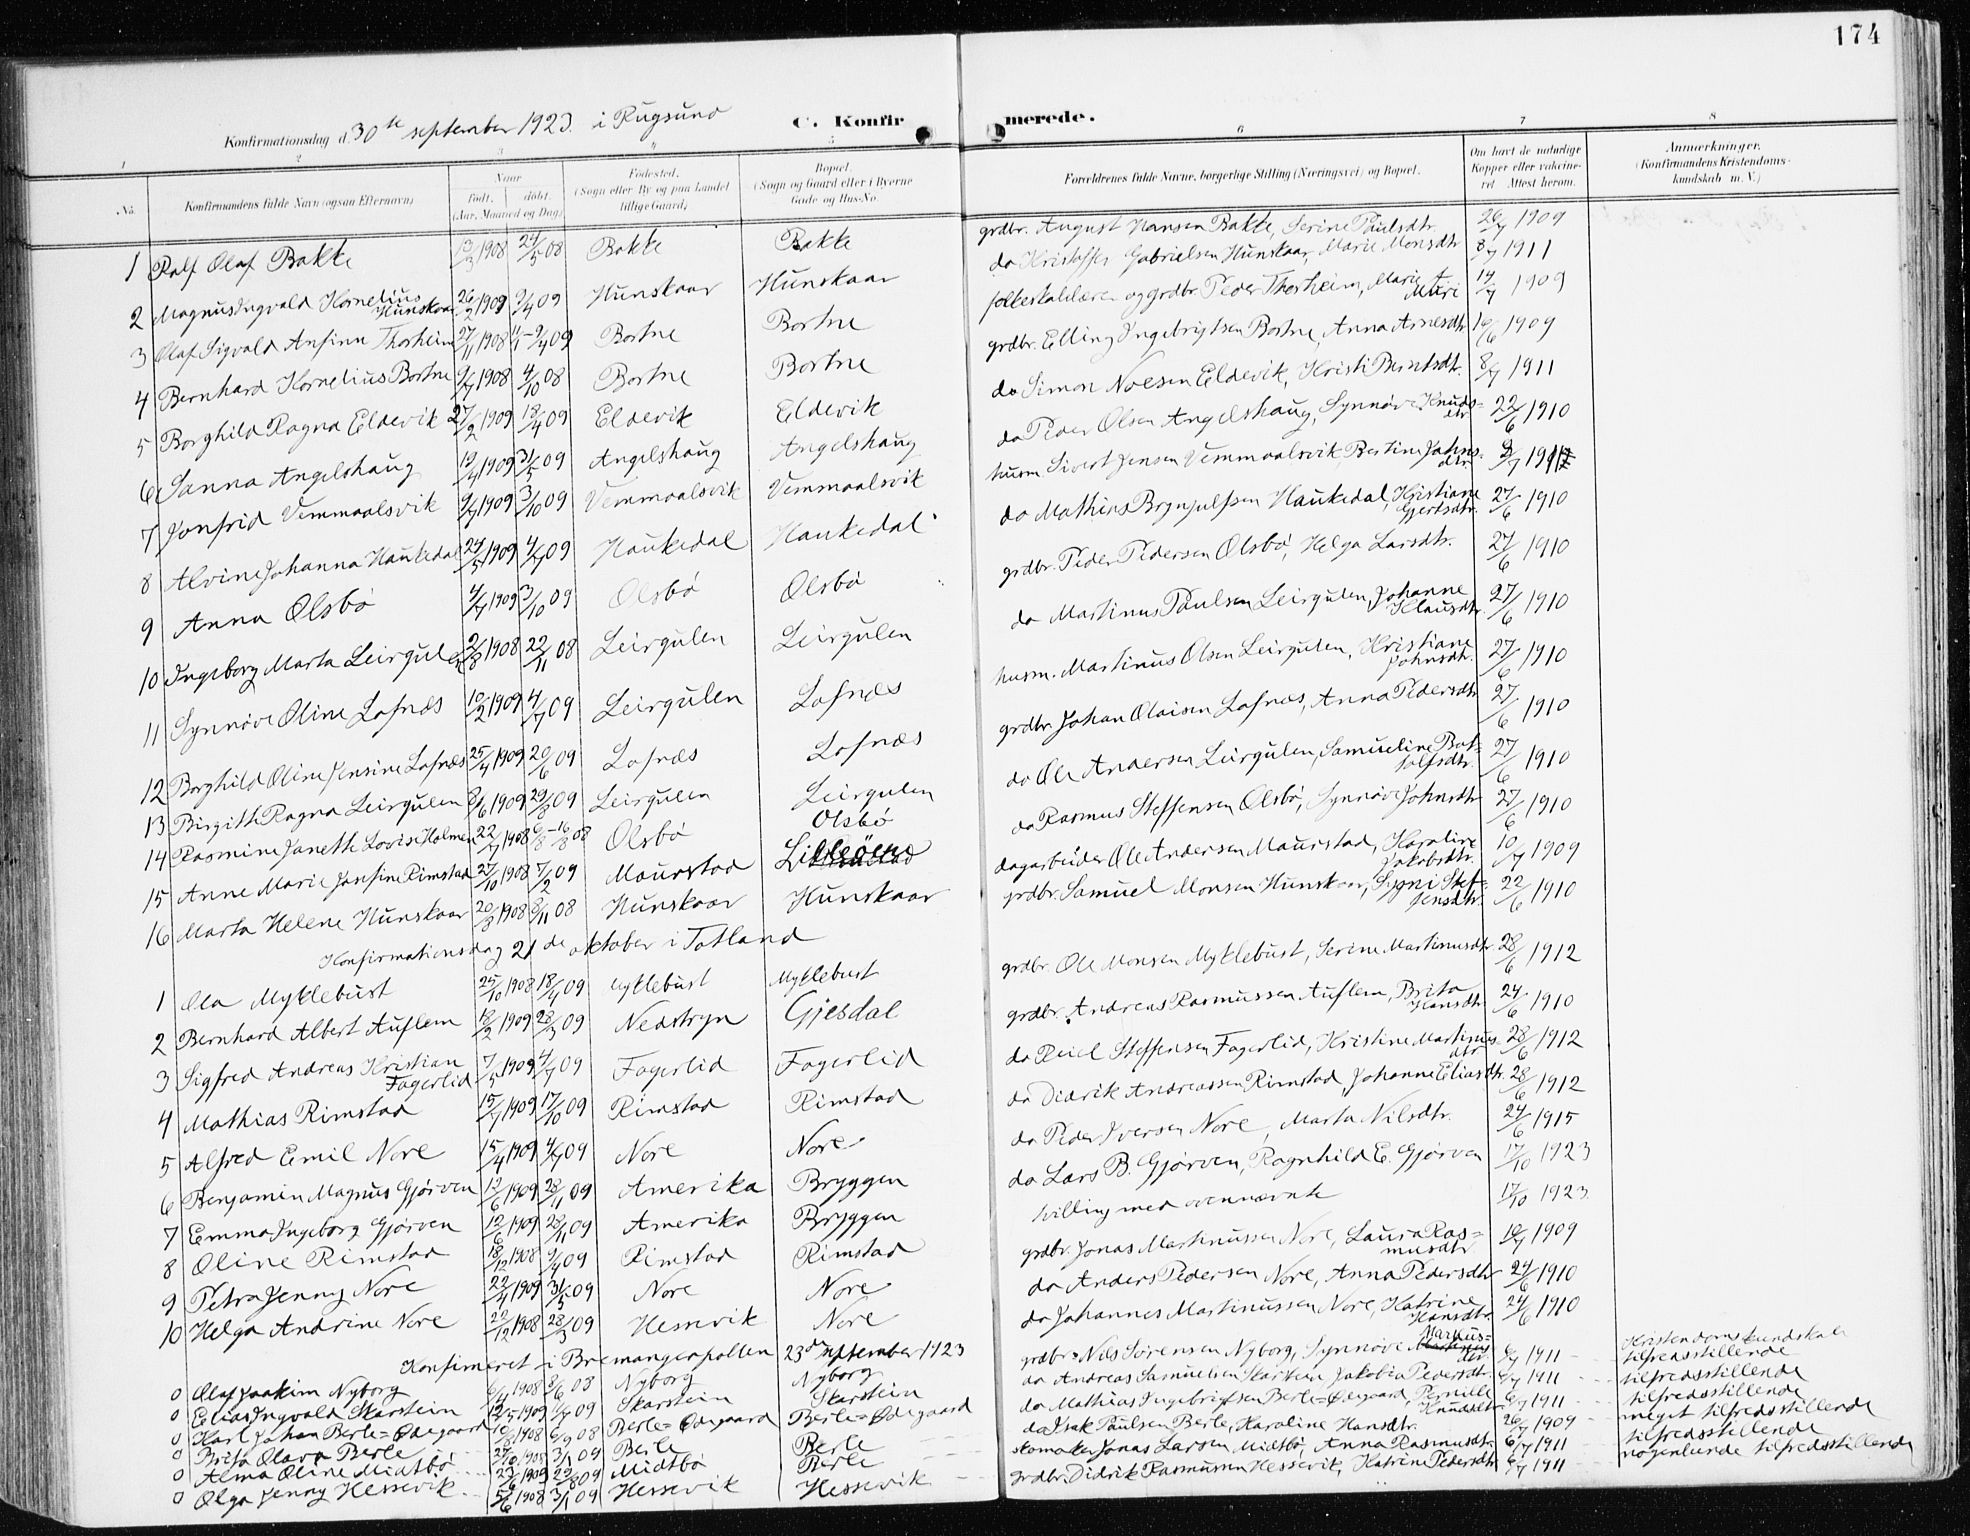 174
Konfirmationsdag d. 30te september 1923. i Rugsund
C. Konfirmerede.
1 2 3 4 5 6 7 8
No. Konfirmandens fulde Navn (ogsaa Efternavn) Naar født. døbt. (Aar, Maaned og Dag) Fødested. (Sogn eller By og paa Landet tillige Gaard) Bopæl. (Sogn og Gaard eller i Byerne Gade og Hus-No. Forældrenes fulde Navne, borgerlige Stilling (Næringsvei) og Bopæl. Om havt de naturlige Kopper eller vakcineret. Attest herom. Anmærkninger. (Konfirmandens Kristendomskundskab m. V.)
1 Ralf Olaf Bakke 13/3 1908 24/5 08 Bakke Bakke grdbr. August Hansen Bakke, Serine Paulsdtr. 26/7 1909
2 Magnus Ingvald Kornelius Hunskaar 26/2 1909 9/4 09 Hunskaar Hunskaar do Kristoffer Gabrielsen Hunskaar, Marie Monsdtr 8/7 1911
3 Olaf Sigvald Anfinn Thorheim 27/11 1908 11/1 - 9/4 09 Bortne Bortne folkeskolelærer og grdbr. Peder Thorheim, Marie A. Muri 14/7 1909
4 Bernhard Kornelius Bortne 9/7 1908 4/10 08 Bortne Bortne grdbr. Elling Ingebrigtsen Bortne, Anna Arnesdtr 16/6 1909
5 Borghild Ragna Eldevik 27/2 1909 18/4 09 Eldevik Eldevik do Simon Noesen Eldevik, Kristi Berntsdt. 8/7 1911
6 Sanna Angelshaug 19/4 1909 31/5 09 Angelshaug Angelshaug do Peder Olsen Angelshaug, Synnøve Knudsdtr 22/6 1910
7 Jonfrid Vemmaalsvik 9/7 1909 3/10 09 Vemmaalsvik Vemmaalsvik husm. Sivert Jensen Vemmaalsvik, Bertine Johnsdtr
8 Alvine Johanna Haukedal 24/5 1909 4/7 09 Haukedal Haukedal do Mathias Brynjulfsen Haukedal, Kristiane Gjertsdtr. 27/6 1910
9 Anna Olsbø 4/7 1909 3/10 09 Olsbø Olsbø grdbr. Peder Pedersen Olsbø, Helga Larsdtr. 27/6 1910
10 Ingeborg Marta Leirgulen 2/8 1908 22/11 08 Leirgulen Leirgulen do Martinus Paulsen Leirgulen, Johanne Klausdtr. 27/6 1910
11 Synnøve Oline Lofnæs 10/2 1909 4/7 09 Leirgulen Lofnæs husm. Martinus Olsen Leirgulen, Kristiane Johnsdt. 27/6 1910
12 Borghild Oline Jensine Lofnæs 25/4 1909 20/6 09 Lofnæs Lofnæs grdbr. Johan Olaisen Lofnæs, Anna Pedersdtr 27/6 1910
13 Birgith Ragna Leirgulen 8/6 1909 29/8 09 Leirgulen Leirgulen do Ole Andersen Leirgulen, Samueline Botolfsdtr. 27/6 1910
14 Rasmine Janeth Lovise Holmen 22/7 1908 6/8 - 16/8 08 Olsbø Olsbø do Rasmus Steffensen Olsbø, Synnøve Johnsdtr 27/6 1910
15 Anne Marie Jonfine Rimstad 27/10 1908 7/2 09 Maurstad Lilleøen dagarbeider Ole Andersen Maurstad, Karoline Jakobsdtr. 10/7 1909
16 Marta Helene Hunskaar 20/8 1908 8/11 08 Hunskaar Hunskaar grdbr. Samuel Monsen Hunskaar, Signi Steffensdtr. 22/6 1910
Konfirmationsdag 21de oktober i Totland
1 Ola Myklebust 25/10 1908 18/4 09 Myklebust Myklebust grdbr. Ole Monsen Myklebust, Serine Martinusdtr 28/6 1912
2 Bernhard Albert Auflem 18/2 1909 28/3 09 Nedstryn Gjesdal grdbr. Andreas Rasmussen Auflem, Brita Hansdtr 24/6 1910
3 Sigfred Andreas Kristian Fagerlid 7/5 1909 4/7 09 Fagerlid Fagerlid do Peiel Steffensen Fagerlid, Kristine Martinusdtr 28/6 1912
4 Mathias Rimstad 15/7 1909 17/10 09 Rimstad Rimstad do Didrik Andreassen Rimstad, Johanne Eliasdtr. 28/6 1912
5 Alfred Emil Nore 15/4 1909 4/7 09 Nore Nore do Peder Iversen Nore, Marta Nilsdtr. 24/6 1915
6 Benjamin Magnus Gjørven 12/6 1909 28/11 09 Amerika Bryggen do Lars B. Gjørven, Ragnhild E. Gjørven 17/10 1923
7 Emma Ingeborg Gjørven 12/6 1909 28/11 09 Amerika Bryggen tvilling med ovennævnte 17/10 1923.
8 Oline Rimstad 18/12 1908 9/4 09 Rimstad Rimstad grdbr. Jonas Martinussen Nore, Laura Rasmusdtr 1909
9 Petra Jenny Nore 22/4 1909 31/5 09 Nore Nore do Anders Pedersen Nore, Anna Pedersdtr 24/6 1910
10 Helga Andrine Nore 22/12 1908 28/3 09 Hessevik Nore do Johannes Martinussen Nore, Katrine Hansdtr. 24/6 1910
Konfirmeret i Bremangerpollen 23de september 1923 Kristendomskundskab
0 Olaf Joakim Nyborg 1908 8/6 08 Nyborg Nyborg grdbr. Nils Sørensen Nyborg, Synnøve Markusdtr 6/7 1911 tilfredsstillende
0 Elias Ingvald Skarstein 12/5 1909 09 Skarstein Skarstein do Andreas Samuelsen Skarstein, Jakobia Pedersdtr. 6/7 1911 tilfredsstillende
0 Karl Johan Berle=Ødegaard 1908 6/9 08 Berle=Ødegaard Berle=Ødegaard do Mathias Ingebrigtsen Berle=Ødegaard, Pernille Knudsdtr 6/7 1911 tilfredsstillende
0 Brita Olava Berle 1908 3/1 09 Berle Berle do Isak Paulsen Berle, Karoline Hansdtr. 26/7 1909 meget tilfredsstillende
0 Alma Oline Midtbø 1909 22/8 09 Midtbø Berle skomaker Jonas Larsen Midtbø, Anna Rasmusdtr. 6/7 1911 tilfredsstillende
0 Olga Jenny Hessevik 5/6 1908 3/1 09 Hessevik Hessevik grdbr. Didrik Rasmussen Hessevik, Katrine Pedersdtr 6/7 1911 nogenlunde tilfredsstillende